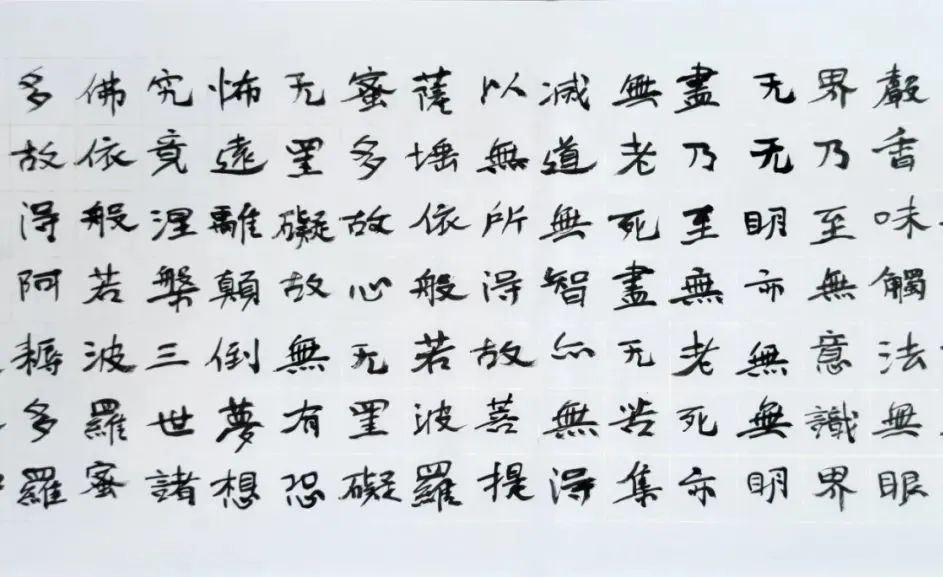 聲香味觸法無眼
界乃至無意識界
无无明亦無無明
盡乃至無老死亦
無老死盡无苦集
滅道無智亦無得
以無所得故菩提
薩埵依般若波羅
蜜多故心无罣礙
无罣礙故無有恐
怖遠離顛倒夢想
究竟涅槃三世諸
佛依般若波羅蜜
多故得阿耨多羅